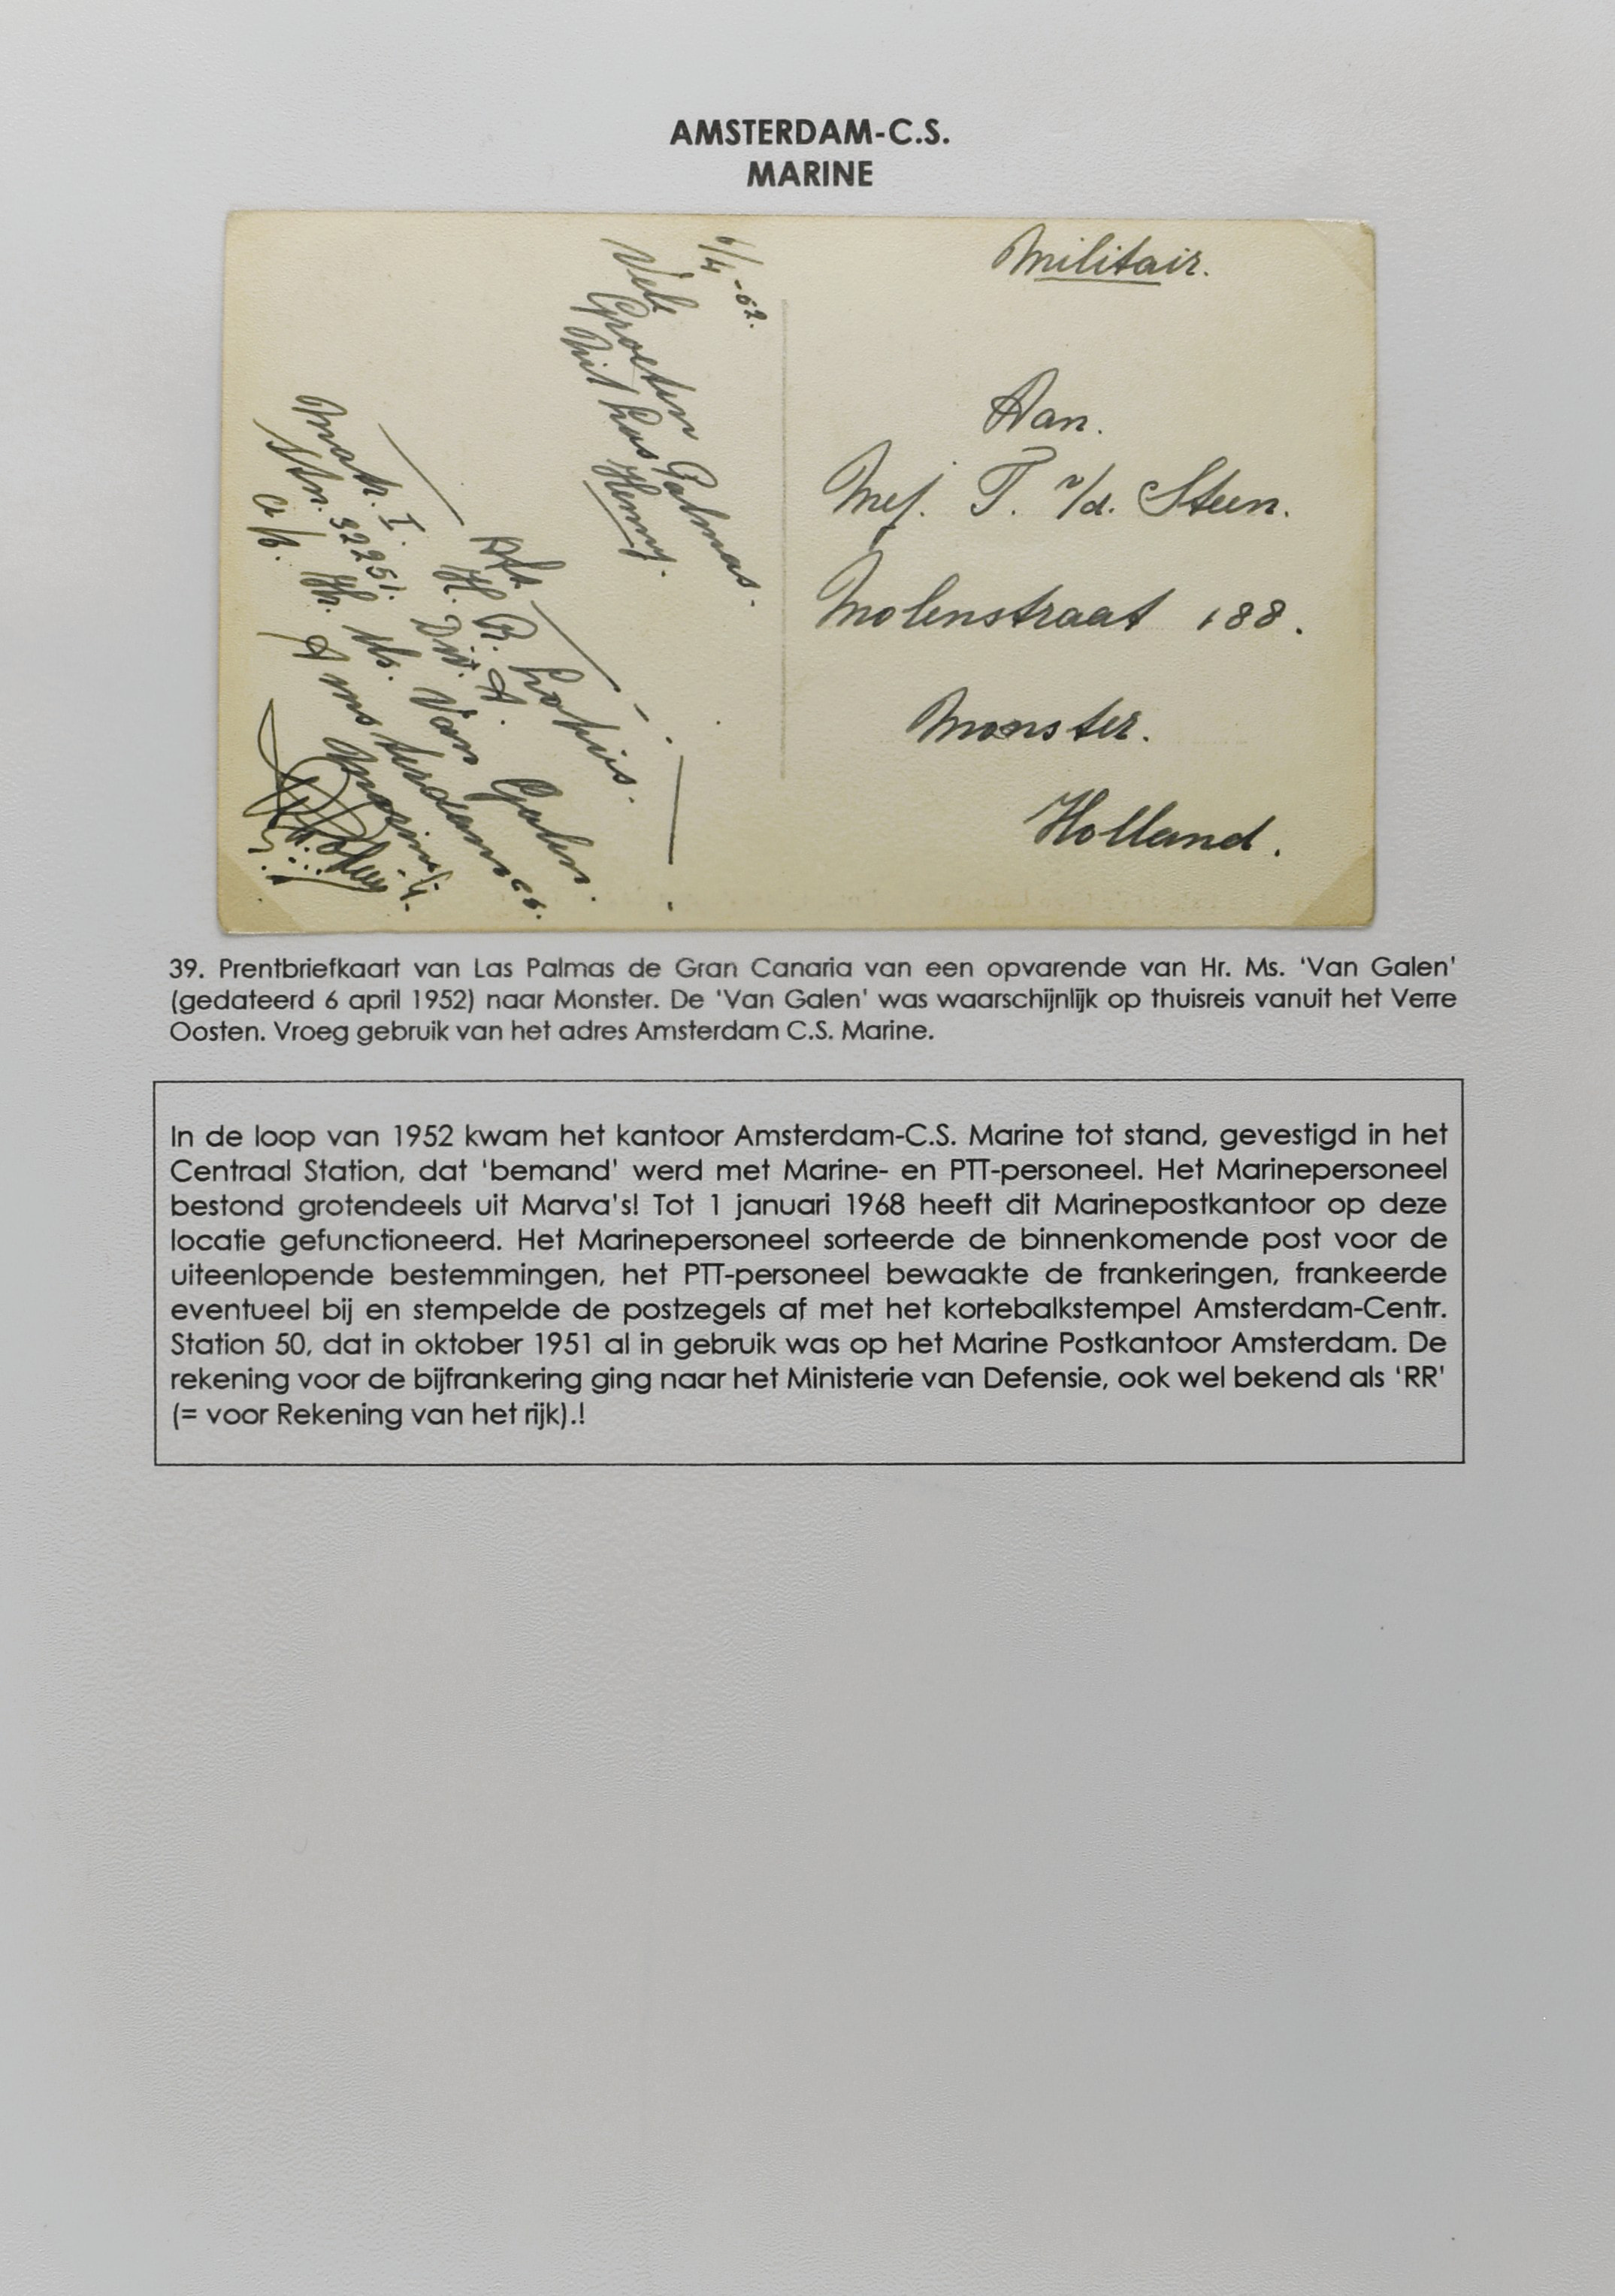 AMSTERDAM-C.S.
MARINE
Militair.
6/4 -52.
Vele
Groeten
Uit Las Palmas.
Henny.
Aan.
Mej. T. v/d. Steen.
Molenstraat 188.
Monster.
Holland.
Afz
H. B.
Matr. I. H. Div. A.
Str. 32251.
a/b. Hr. Ms. Van Galen.
Amsterdam cs.
39. Prentbriefkaart van Las Palmas de Gran Canaria van een opvarende van Hr. Ms. 'Van Galen'
(gedateerd 6 april 1952) naar Monster. De 'Van Galen' was waarschijnlijk op thuisreis vanuit het Verre
Oosten. Vroeg gebruik van het adres Amsterdam C.S. Marine.
In de loop van 1952 kwam het kantoor Amsterdam-C.S. Marine tot stand, gevestigd in het
Centraal Station, dat 'bemand' werd met Marine- en PTT-personeel. Het Marinepersoneel
bestond grotendeels uit Marva's! Tot 1 januari 1968 heeft dit Marinepostkantoor op deze
locatie gefunctioneerd. Het Marinepersoneel sorteerde de binnenkomende post voor de
uiteenlopende bestemmingen, het PTT-personeel bewaakte de frankeringen, frankeerde
eventueel bij en stempelde de postzegels af met het kortebalkstempel Amsterdam-Centr.
Station 50, dat in oktober 1951 al in gebruik was op het Marine Postkantoor Amsterdam. De
rekening voor de bijfrankering ging naar het Ministerie van Defensie, ook wel bekend als 'RR'
(= voor Rekening van het rijk).!